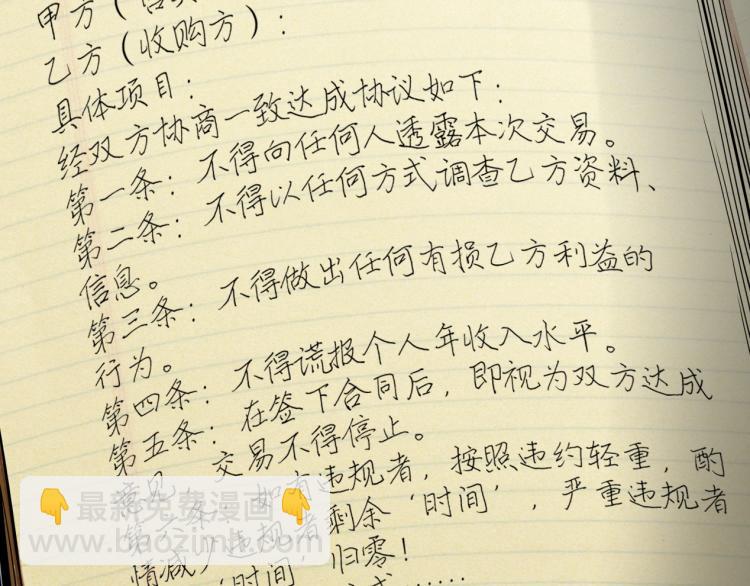 甲方（
乙方（收购方）：
具体项目：
经双方协商一致达成协议如下：
第一条：不得向任何人透露本次交易。
第二条：不得以任何方式调查乙方资料、
信息。
第三条：不得做出任何有损乙方利益的
行为。
第四条：不得谎报个人年收入水平。
第五条：在签下合同后，即视为双方达成
意见，交易不得停止。
第六条：如有违规者，按照违约轻重，酌
情减少违规者剩余‘时间’，严重违规者
‘时间’归零！
最新免费漫画
www.baozimh.com